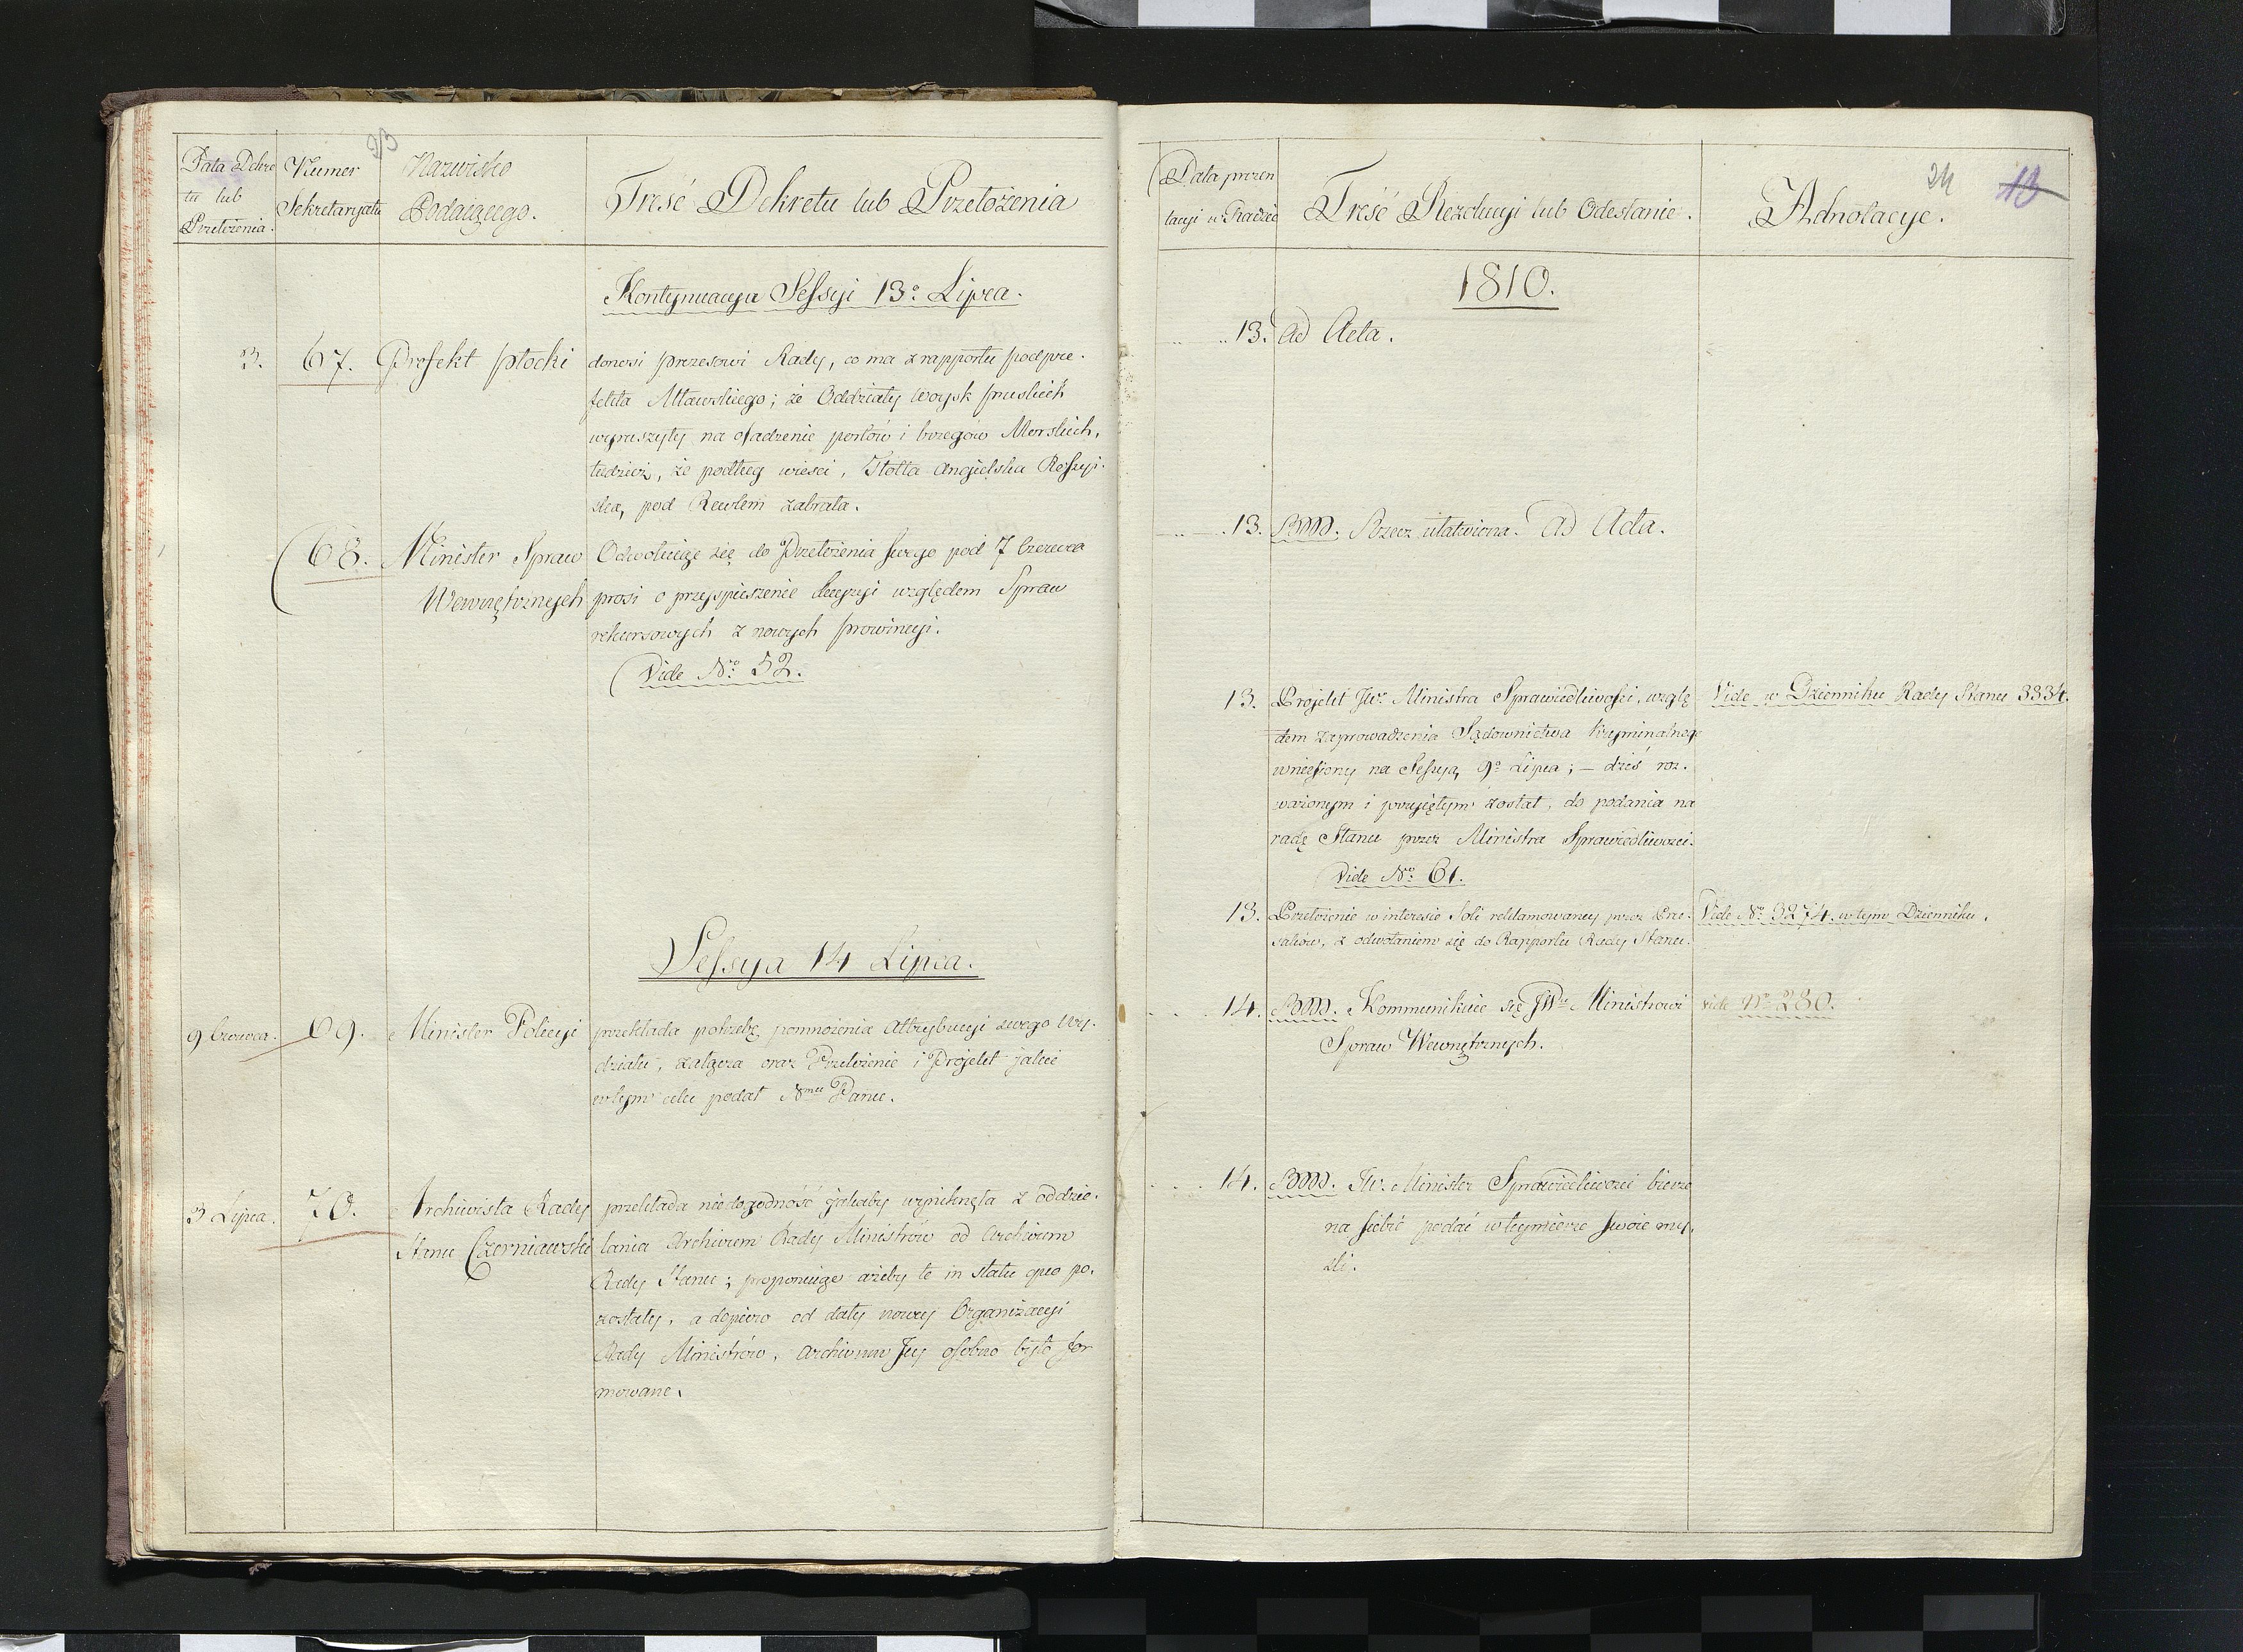 23
Data Dekre
tu lub
Przełożenia.
Numer
Sekretaryatu
Nazwisko
Podaiącego.
Treść Dekretu lub Przełożenia
Kontynuacya Sessyi 13º Lipca.
3.
67.
Prefekt płocki
donosi prezesowi Rady, co ma z rapportu podpre-
fekta Mławskiego; że Oddziały woysk pruskich
wyruszyły na osadzenie portów i brzegów Morskich,
tudzież, że podług wieści, Flotta Angielska Rossyi-
ska, pod Rewlem zabrała.
68.
Minister Spraw
Wewnętrznych
Odwołuiąc się do Przełożenia swego pod 7 Czerwca
prosi o przyspieszenie decyzyi względem Spraw
rekursowych z nowych prowincyi.
Vide Nº 52.
Sessya 14 Lipca.
9 Czerwca.
69.
Minister Policyi
przekłada potrzebę pomnożenia attrybucyi swego Wy-
działu, załącza oraz Przełożenie i Projekt jakie
w tym celu podał Nmu Panu.
3 Lipca.
70.
Archiwista Rady
Stanu Czerniawski
przekłada niedogodność jakaby wyniknęła z oddzie-
lania Archiwum Rady Ministrów od Archiwum
Rady Stanu; proponuiąc ażeby te in statu quo po-
zostały, a dopiero od daty nowey Organizacyi
Rady Ministrów, Archiwum Jey osobno było for
mowane.
24 13
Data prezen
tacyi w Radzie
Treść Rezolucyi lub Odesłanie.
Adnotacye.
1810.
13. ad Acta.
13. Rzecz ułatwiona. Ad Acta.
13. Projekt JW. Ministra Sprawiedliwości, wzglę
dem zaprowadzenia Sądownictwa kryminalnego
wniesiony na Sessyą 9º Lipca; – dziś roz-
ważonym i przyiętym został, do podania na
radę Stanu przez Ministra Sprawiedliwości.
Vide Nº 61.
Vide w Dzienniku Rady Stanu 3334.
13. Przełożenie w interesie Soli reklamowaney przez Pru-
saków, z odwołaniem się do Rapportu Rady Stanu.
Vide Nº 3274. w tym Dzienniku.
14. Kommunikuie się JWu Ministrowi
Spraw Wewnętrznych.
vide Nº 280.
14. JW. Minister Sprawiedliwości bierze
na siebie podać w teymierze swoie my-
śli.